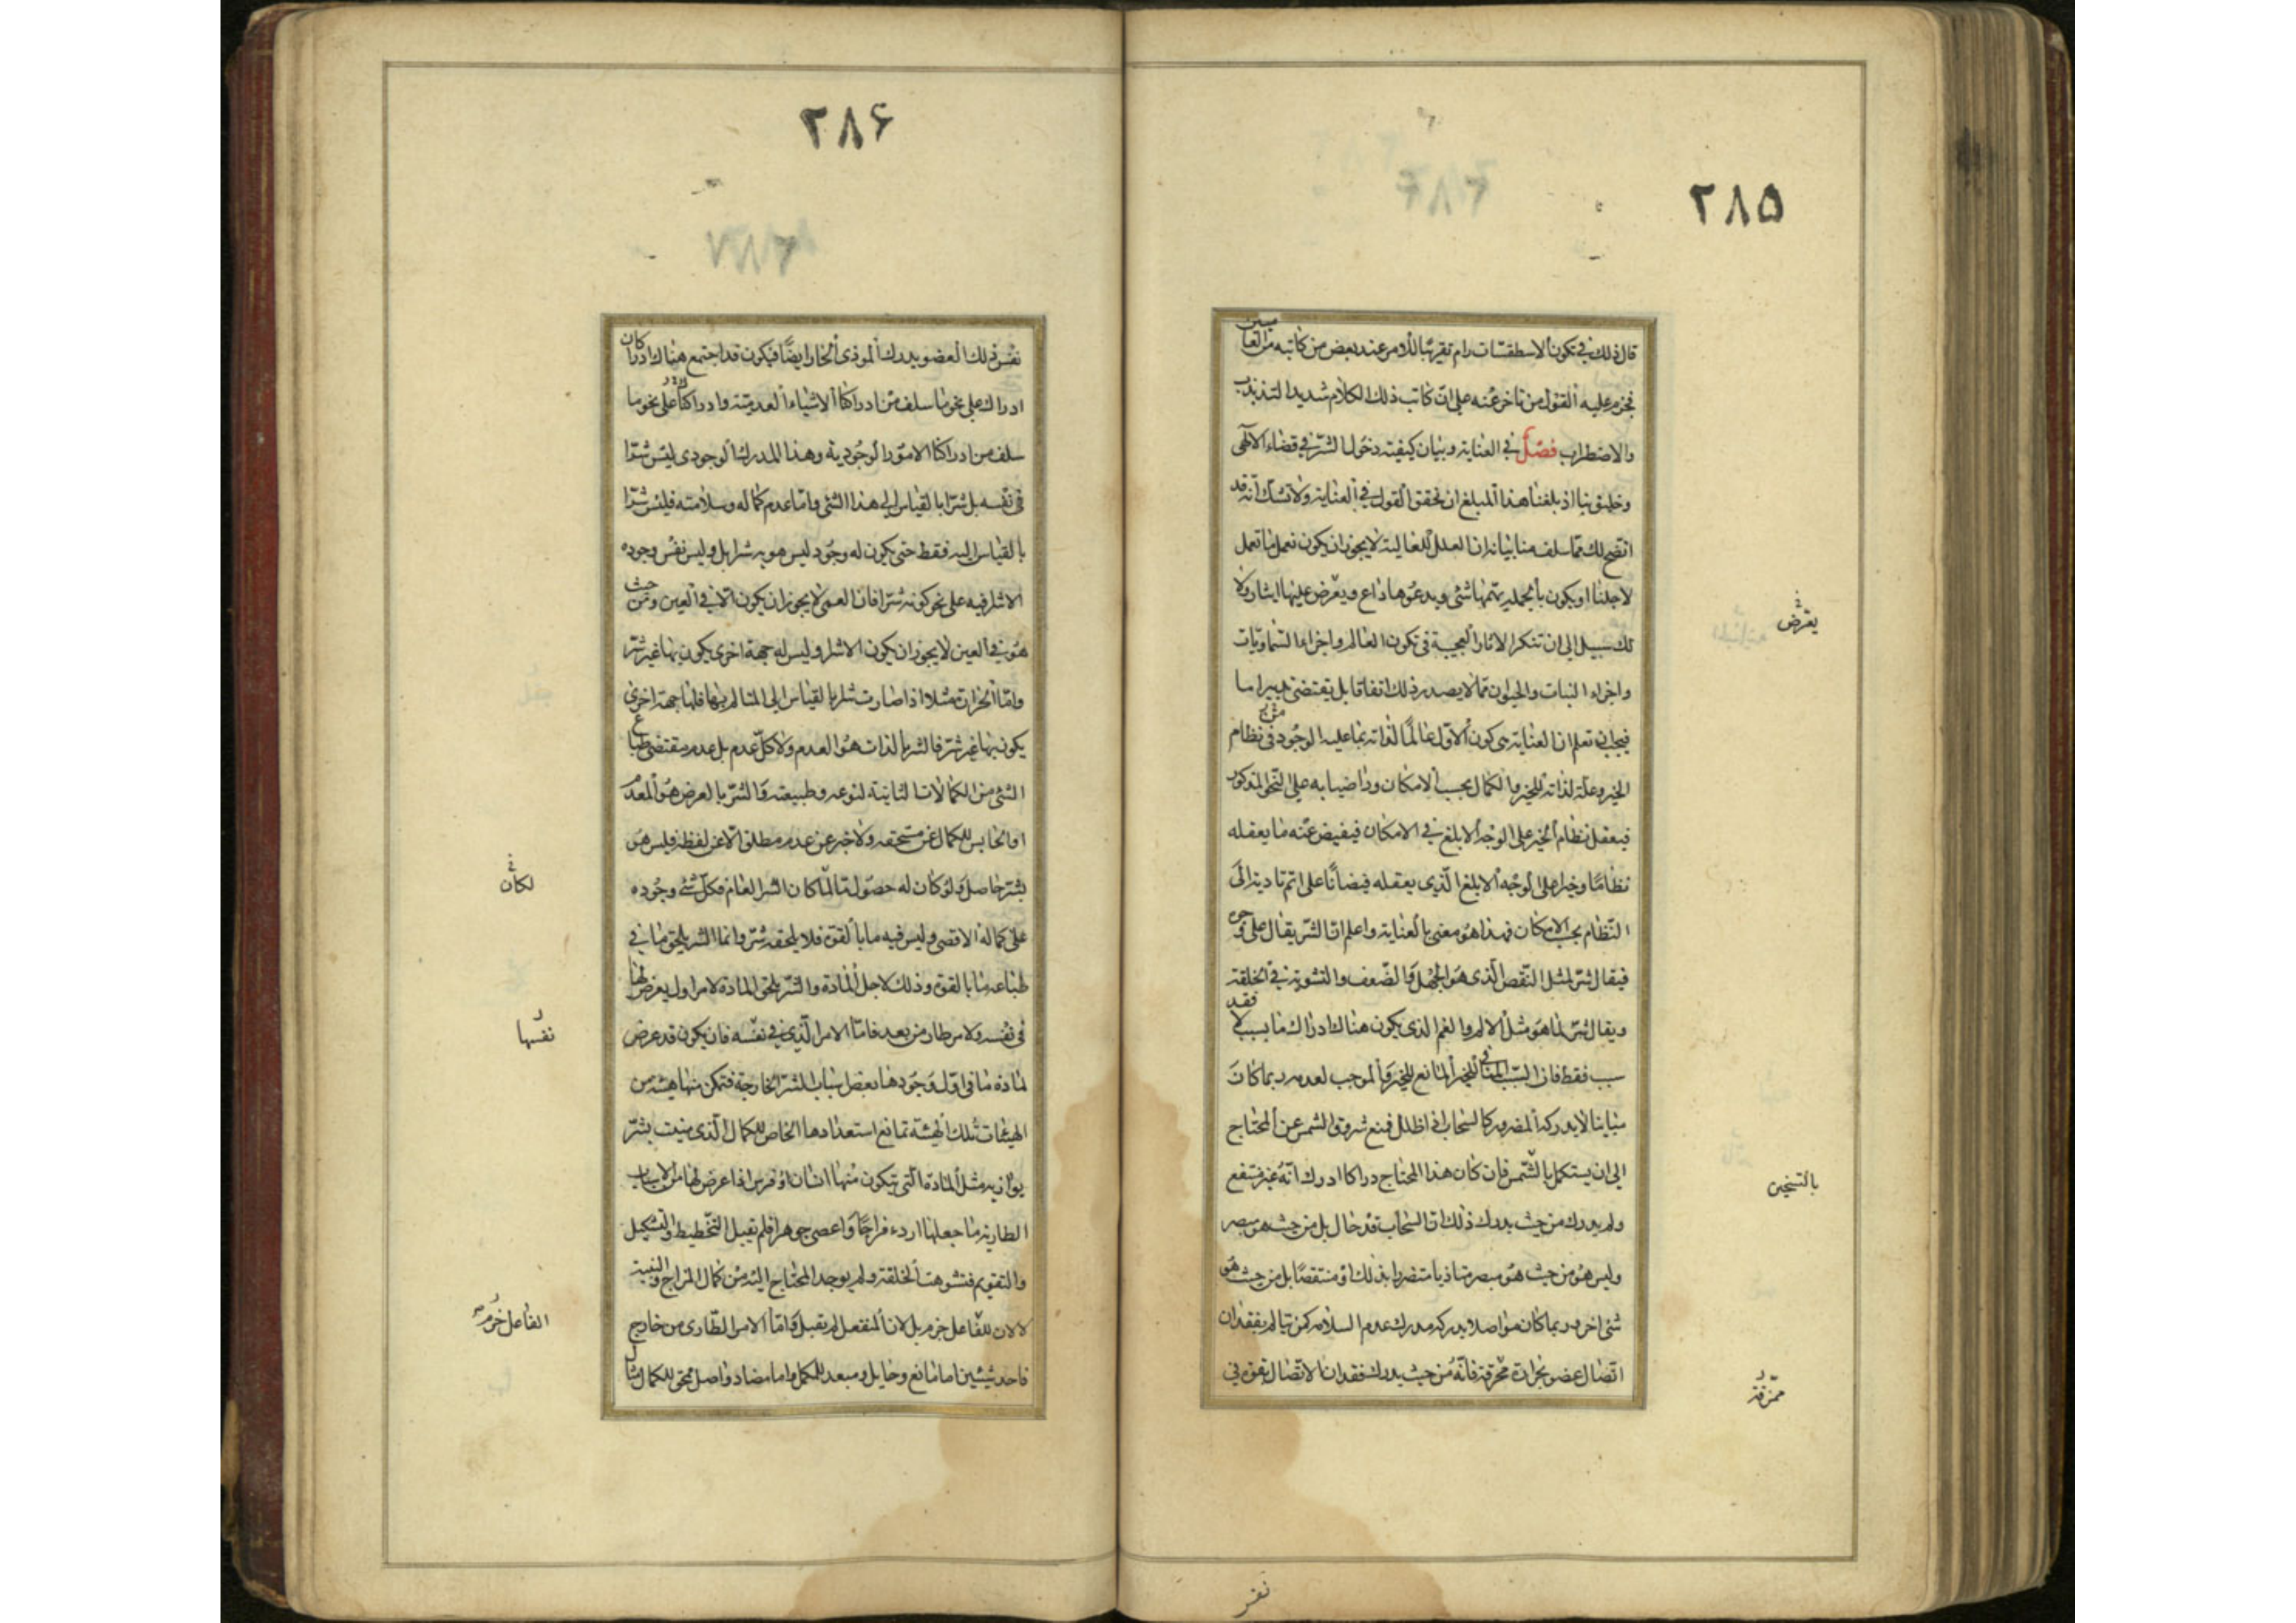 ٢٨۵
قال ذلك في تكون الاسطقسات رام تقريبا للامر عند بعض من كاتبه من العاميين
فجزم عليه القول من تاخر عنه على ان كاتب ذلك الكلام شديد التذبذب
والاضطراب فصل في العناية وبيان كيفية دخول الشر في قضاء الالهى
وخليق بنا اذ بلغنا هذا المبلغ ان نحقق القول في العناية ولا شك انه قد
اتضح لك مما سلف منا بيانه ان العلل العالية لا يجوز ان يكون تعمل ما تعمل
لاجلنا او يكون بالجمله يهمها شئ ويدعوها داع ويعرض عليها ايثار ولا
لك سبيل الى ان تنكر الاثار العجيبة في تكون العالم واجزاء السماويات
واجزاء النبات والحيوان مما لا يصدر ذلك اتفاقا بل يقتضى تدبيرا ما
فيجب ان تعلم ان العناية هى كون الاول عالما لذاته بما عليه الوجود فى نظام
الخير وعلة لذاته للخير والكمال بحسب الامكان وراضيا به على النحو المذكور
فيعقل نظام الخير على الوجه الابلغ في الامكان فيفيض عنه ما يعقله
نظاما وخيرا على الوجه الابلغ الذى يعقله فيضانا على اتم تادية الى
النظام بحسب الامكان فهذا هو معنى بالعناية واعلم ان الشر يقال على وجوه
فيقال شر لمثل النقص الذى هو الجهل والضعف والتشويه في الخلقة
ويقال شر لما هو مثل الالم والغم الذى يكون هناك ادراك ما بسبب لا فقد
سبب فقط فان السبب المنافى للخير المانع للخير والموجب لعدمه ربما كان
مباينا لا يدركه المضرور كالسحاب اذا ظلل فمنع شروق الشمس عن المحتاج
الى ان يستكمل بالشمس فان كان هذا المحتاج دراكا ادرك انه غير منتفع
ولم يدرك من حيث يدرك ذلك ان السحاب قد حال بل من حيث هو مبصر
وليس هو من حيث هو مبصر متاذيا متضررا بذلك او منتقصا بل من حيث هو
شئ اخر وربما كان مواصلا يدركه مدرك عدم السلامه كمن يتالم بفقدان
اتصال عضو بحرارة محرقة فانه من حيث يدرك فقدان الاتصال بقوة في
يعرض
بالتسخين
ممزقة
نفس
٢٨۶
نفس ذلك العضو يدرك الموذى الحار ايضا فيكون قد اجتمع هناك ادراكان
ادراك على نحو ما سلف من ادراكنا الاشياء العدمية وادراك على نحو ما
سلف من ادراكنا الامور الوجودية وهذا المدرك الوجودى ليس شرا
فى نفسه بل شرا بالقياس الى هذا الشئ واما عدم كماله وسلامته فليس شرا
بالقياس اليه فقط حتى يكون له وجود ليس هو به شرا بل وليس نفس وجوده
الا شرا فيه على نحو كونه شرا فان العمى لا يجوز ان يكون الا في العين ومن حيث
هو في العين لا يجوز ان يكون الا شرا وليس له جهة اخرى يكون بها غير شر
واما الحرارة مثلا اذا صارت شرا بالقياس الى المتالم بها فلها جهة اخرى
يكون بها غير شر فالشر بالذات هو العدم ولا كل عدم بل عدم مقتضى طباع
الشئ من الكمالات الثابتة لنوعه وطبيعته والشر بالعرض هو المعدم
او الحابس للكمال عن مستحقه ولا خبر عن عدم مطلق الا عن لفظه فليس هو
بشر حاصل ولو كان له حصول ما لما كان الشر العام فكل شئ وجوده
على كماله الاقصى وليس فيه ما بالقوة فلا يلحقه شر وانما الشر يلحق ما في
طباعه ما بالقوة وذلك لاجل المادة والشر يلحق المادة لامر اول يعرض لها
فى نفسه ولامر طار من بعد فاما الامر الذى في نفسه فان يكون قد عرض
لمادة ما فى اول وجودها بعض اسباب الشر الخارجة فتمكن منها هيئة من
الهيئات تلك الهيئة تمانع استعدادها الخاص للكمال الذى منيت بشر
يوازيه مثل المادة التى يتكون منها انسان او فرس اذا عرض لها من الاسباب
الطارية ما جعلها اردء مزاجا واعصى جوهرا فلم تقبل التخطيط والتشكيل
والتقويم فتشوهت الخلقة ولم يوجد المحتاج اليه من كمال المزاج والبنية
لا لان للفاعل حرم بل لان المنفعل لم يقبل واما الامر الطارى من خارج
فاحد شيئين اما مانع وحايل ومبعد للكمل واما مضاد واصل محق للكمال مثال
لكان
نفسها
الفاعل حرم